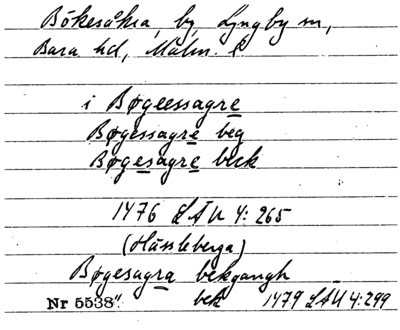 Bökesåkra, by, Lyngby sn,
Bara hd, Malm. l
i Bøgeessagre
Bøgessagre beg
Bøgesagre beck
1476 LÄU 4: 265
(Hässleberga)
Bøgesagra bekgangh
Nr 5538" bek 1479 LÄU 4:299